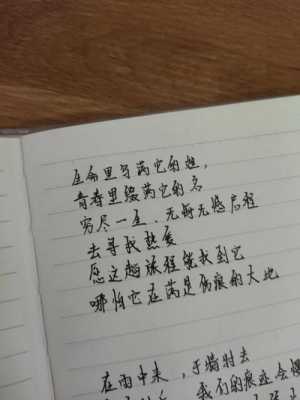 生命里写满它的祖,
青春里缀满它的名
穷尽一生.无悔无憾启程
去寻找热爱
愿这趟旅程能找到它
哪怕它在满是伤痕的大地
在雨中来,于晴时去
我们的痕迹会